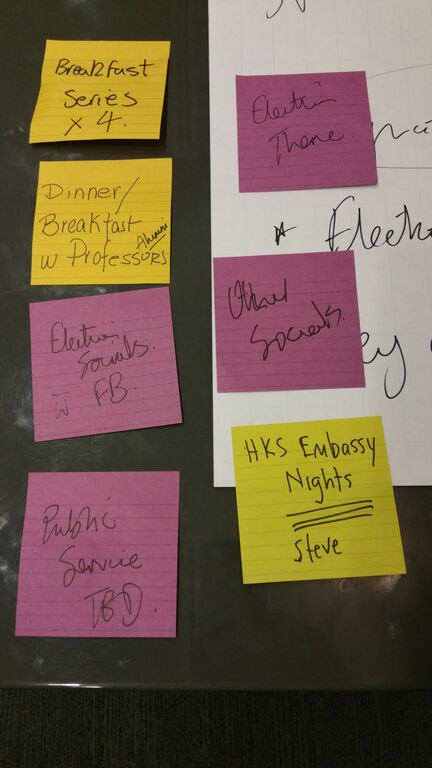 Breakfast
Series
x 4.
Dinner/
Breakfast
w Professors
Alumni
Election
Socials
w FB.
Public
Service
TBD.
Election
Theme.
* Electi
Other
Socials.
HKS Embassy
Nights
Steve